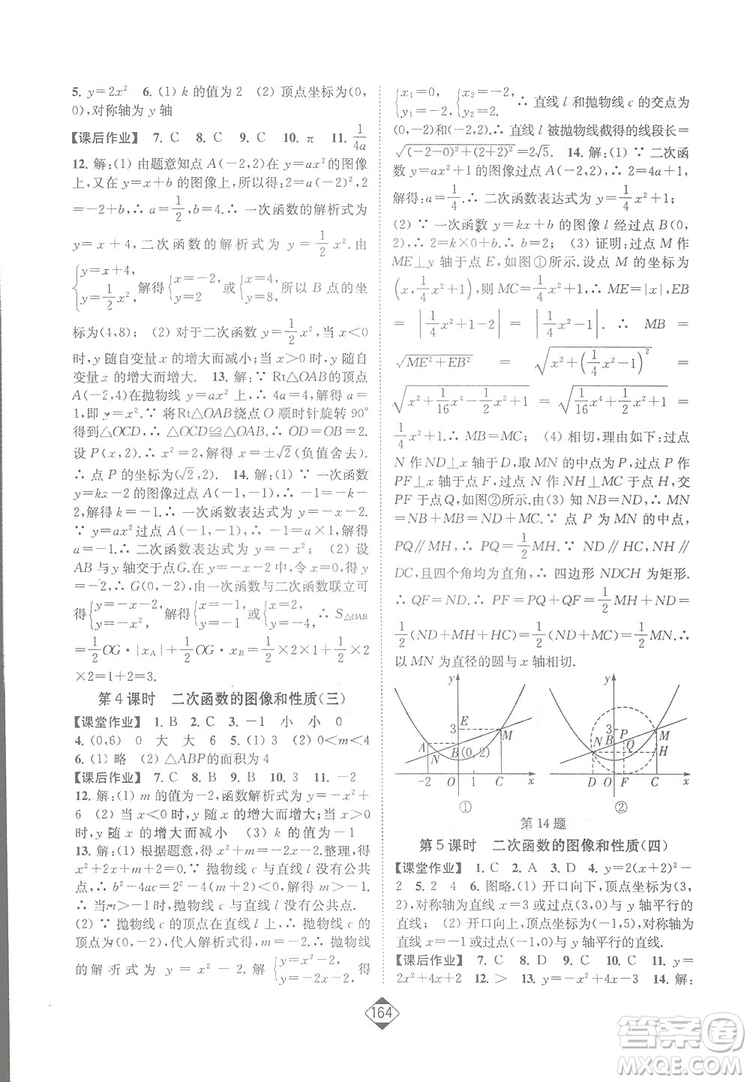 5. y=2x² 6. (1) k 的值为 2 (2) 顶点坐标为(0,
0),对称轴为 y 轴
【课后作业】 7. C 8. C 9. C 10. π 11. 1/(4a)
12. 解:(1) 由题意知点 A(-2,2)在 y=ax² 的图像
上,又在 y=x+b 的图像上.所以得:2=a·(-2)²,2
=-2+b,∴ a=1/2,b=4.∴ 一次函数的解析式为
y=x+4,二次函数的解析式为 y=1/2x². 由
{y=x+4, y=1/2x², 解得{x=-2, y=2 或{x=4, y=8. 所以 B 点的坐
标为(4,8); (2) 对于二次函数 y=1/2x²,当 x<0
时,y 随自变量 x 的增大而减小;当 x>0 时,y 随自
变量 x 的增大而增大. 13. 解:∵ Rt△OAB的顶点
A(-2,4)在抛物线 y=ax² 上,∴ 4=4a.解得 a=
1,即 y=x².∵ 将Rt△OAB绕点 O 顺时针旋转 90°
得到△OCD,∴ △OCD≌△OAB.∴ OD=OB=2.
设 P(x,2),∴ 2=x².解得:x=±√2(负值舍去).
∴ 点 P 的坐标为(√2,2). 14. 解:∵ 一次函数
y=kx-2 的图像过点A(-1,-1),∴ -1=-k-2,
解得 k=-1.∴ 一次函数表达式为 y=-x-2;∵
y=ax²过点 A(-1,-1),∴ -1=a×1,解得
a=-1.∴ 二次函数表达式为 y=-x²; (2) 设
AB 与 y 轴交于点G.在 y=-x-2中,令x=0,得y=
-2,∴ G(0,-2),由一次函数与二次函数联立可
得{y=-x-2, y=-x², 解得{x=-1, y=-1 或{x=2, y=-4. ∴ S△OAB
=1/2OG·|x_A|+1/2OG·|x_B|=1/2×2×1+1/2×2
×2=1+2=3.
第 4 课时 二次函数的图像和性质(三)
【课堂作业】 1. B 2. C 3. -1 小 小 0
4. (0,6) 0 大 大 6 5. (1) 3 (2) 0<m<4
6. (1) 略 (2) △ABP的面积为 4
【课后作业】 7. C 8. B 9. B 10. C 11. -2
12. 解:(1) m 的值为-2,函数解析式为 y=-x²+
6 (2) m 的值为 1 (3) m 的最小值为-1
13. 解:(1) 根据题意,得 y=x²+m=x.整理,得
x²-x+m=0.∵ 抛物线 c 与直线 l 没有公共
点,∴ b²-4ac=2-4m<0. 解得 m>1/4.
(2) ∵ 抛物线 c 的顶点在直线 l 上,∴ 抛物线 c 的
顶点为(0,-2),代入解析式得 m=-2.∴ 抛物线
的解析式为 y=x²-2.解{y=x²-2, y=x-2, 得
{x₁=0, y₁=-2, {x₂=-2, y₂=2. ∴ 直线 l 和抛物线 c 的交点为
(0,-2),(-2,2),∴ 直线 l 被抛物线截得的线段长=
√((-2-0)²+(2+2)²)=2√5. 14. 解:(1) ∵ 二次函
数 y=ax²+1 的图像过点 A(-2,2),∴ 2=4a+1,
解得:a=1/4.∴ 二次函数表达式为 y=1/4x²+1
(2) ∵ 一次函数 y=kx+b 的图像 l 经过点 B(0,
2),∴ 2=k×0+b.∴ b=2; (3) 证明:过点 M 作
ME⊥y 轴于点 E,如图①所示.设点 M 的坐标为
(x,1/4x²+1),则 MC=1/4x²+1.∴ ME=|x|,EB
=|1/4x²+1-2|=|1/4x²-1|.∴ MB =
√(ME²+EB²) = √(x²+(1/4x²-1)²) =
√(x²+1/16x⁴-1/2x²+1)=√(1/16x⁴+1/2x²+1)=
1/4x²+1.∴ MB=MC; (4) 相切,理由如下:过点
N 作 ND⊥x 轴于点 D,取 MN 的中点为 P,过点 P
作 PF⊥x 轴于点 F,过点 N 作 NH⊥MC 于点 H,交
PF 于点 Q,如图②所示.由(3) 知 NB=ND,∴ MN=
NB+MB=ND+MC.∵ 点 P 为 MN 的中点,
PQ∥MH,∴ PQ=1/2MH.∵ ND∥HC,NH∥
DC,且四个角均为直角,∴ 四边形 NDCH 为矩形.
∴ QF=ND,∴ PF=PQ+QF=1/2MH+ND=
1/2(ND+MH+HC)=1/2(ND+MC)=1/2MN.∴
以 MN 为直径的圆与 x 轴相切.
y
3 E
M
A
B (0,2)
-2 O 1 C x
①
y
3
M
N P
Q H
D O F C x
②
第 14 题
第 5 课时 二次函数的图像和性质(四)
【课堂作业】 1. C 2. A 3. D 4. y=2(x+2)²-
2 5. 2 4 6. 图略. (1) 开口向下,顶点坐标为(3,
2),对称轴为直线 x=3与y轴平行的直线
(2) 开口向上,顶点坐标为(-1,
5),对称轴为直线 x=-1与 y 轴平行的直线.
【课后作业】 7. C 8. C 9. D 10. C 11. y=
2x²+4x+2 12. > 13. x₁=-4,x₂=-1 14. 解:
164
答案圈
MXQE.COM